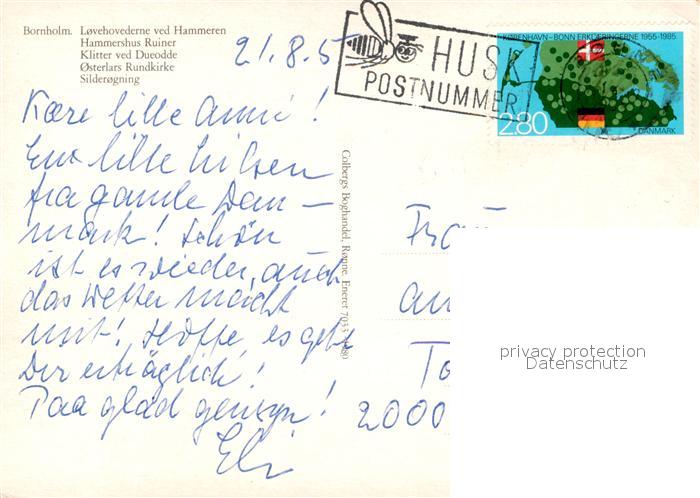 Bornholm. Løvehovederne ved Hammeren
Hammershus Ruiner
Klitter ved Dueodde
Østerlars Rundkirke
Silderøgning
21.8.85
HUSK
POSTNUMMER
KØBENHAVN-BONN ERKLÆRINGERNE 1955-1985
2.80
DANMARK
Kære lille Anni!
Een lille hilsen
fra gamle Dan-
mark! Schön
ist es wieder, auch
das Wetter macht
mit! Hoffe, es geht
Dir erträglich!
Paa glad gensyn!
Colbergs Boghandel, Rønne. Eneret
Frau
2000
privacy protection
Datenschutz